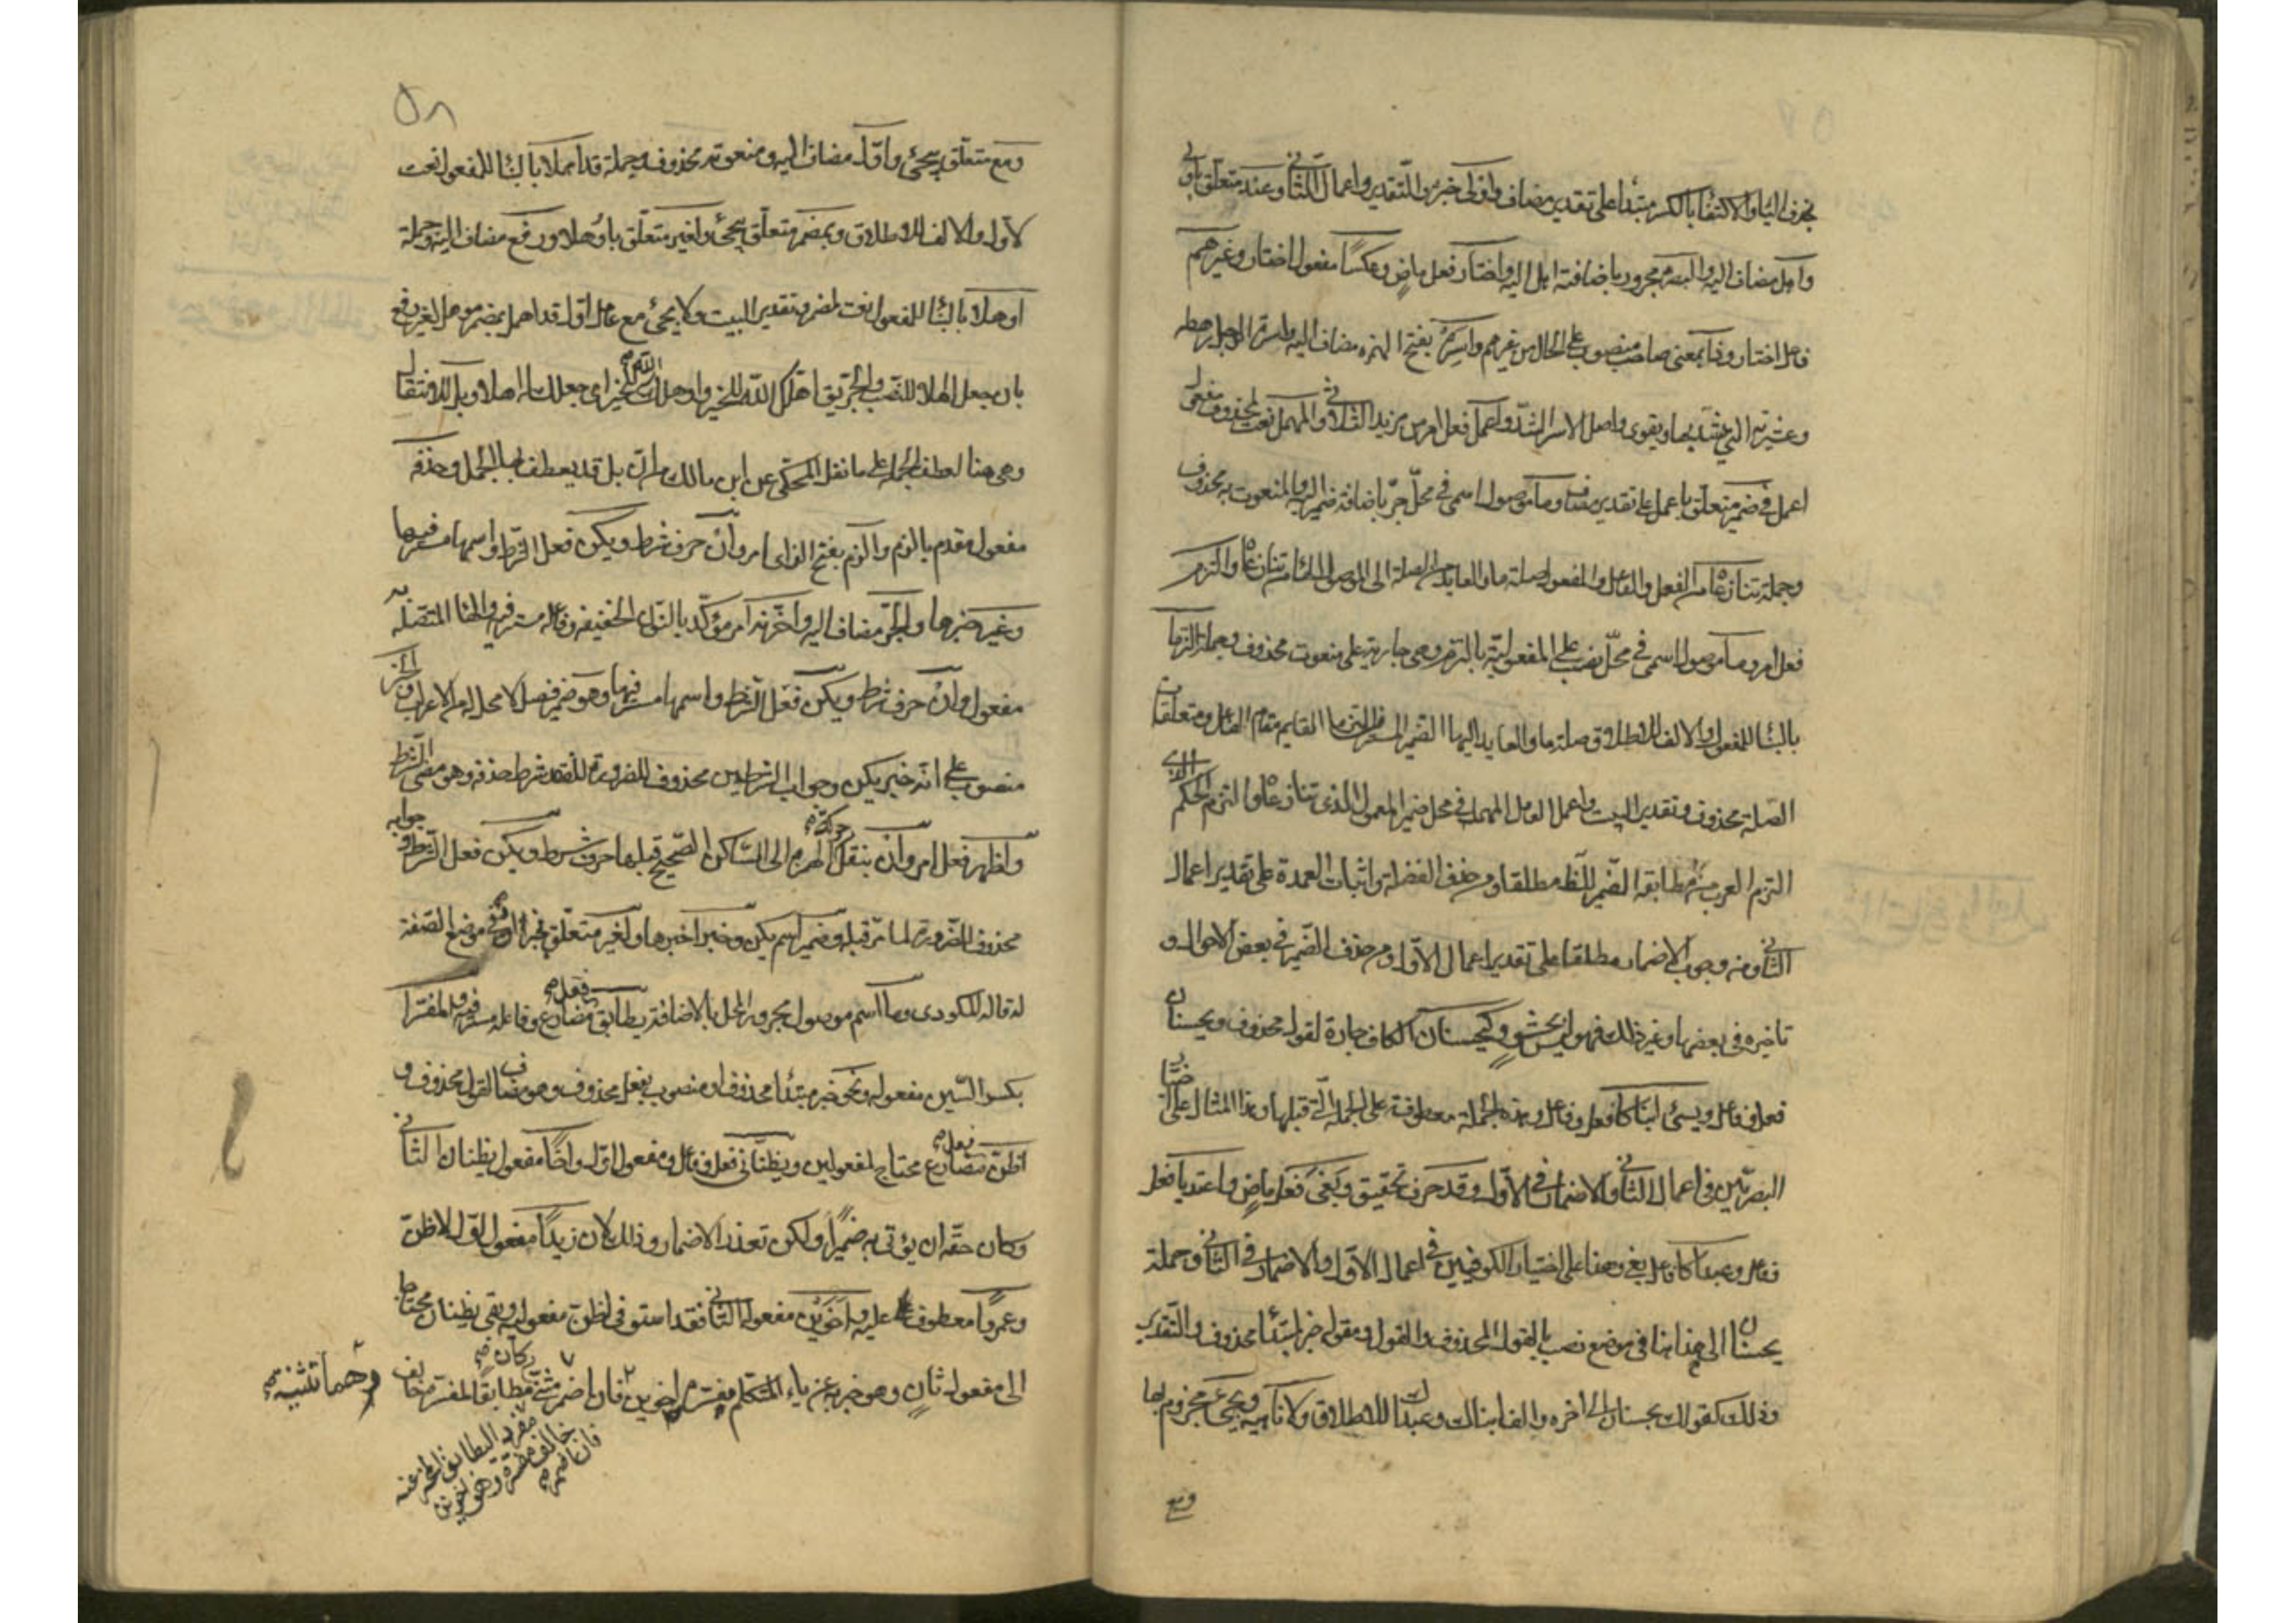 بحذف الياء والاكتفاء بالكسر مبتدأ على تقدير مضاف واولى خبره والتقدير واعمال الثاني وعند متعلق باولى
واهل مضاف اليه والبصرة مجرور باضافة اهل اليه واختار فعل ماض وعكسا مفعول اختار وغيرهم
فاعل اختار وذا بمعنى صاحب منصوب على الحال من غيرهم واسره بفتح الهمزة مضاف اليه واسرة الرجل رهطه
وعشيرته التي يشتد بها ويقوى واصل الاسر الشد واعمل فعل امر من مزيد الثلاثي والمهمل نعت لمحذوف مفعول
اعمل في ضمير متعلق باعمل على تقدير مضاف وما موصول اسمي في محل جر باضافة ضمير اليه والمنعوت به محذوف
وجملة تنازعاه من الفعل والفاعل والمفعول صلة ما والعايد من الصلة الى الموصول الهاء من تنازعاه والتزم
فعل امر وما موصول اسمي في محل نصب على المفعولية بالتزم وهي جارية على منعوت محذوف وجملة التزما
بالبناء للمفعول والالف للاطلاق صلة ما والعايد اليها الضمير المستتر في التزما القايم مقام الفاعل ومتعلقات
الصلة محذوف وتقدير البيت واعمل العامل المهمل في محل ضمير المعمول الذي تنازعاه والتزم الحكم الذي
التزم العرب من مطابقة الضمير للظاهر مطلقا ومن حذف الفضلة واثبات العمدة على تقدير اعمال
الثاني ومن وجوب الاضمار مطلقا على تقدير اعمال الاول ومن حذف الضمير في بعض الاحوال و
تاخيره في بعضها وغير ذلك فهو ليس بحشو وكيحسنان الكاف جارة لقول محذوف ويحسنان
فعل وفاعل ويسيء ابناكا فعل وفاعل وهذه الجملة معطوفة على الجملة التي قبلها وهذا المثال على اختيار
البصريين في اعمال الثاني والاضمار في الاول وقد حرف تحقيق وبغى فعل ماض واعتديا فعل
وفاعل وعبداكا فاعل بغى وهذا على اختيار الكوفيين في اعمال الاول والاضمار في الثاني وجملة
يحسنان الى هنا في موضع نصب بالقول المحذوف والقول ومقوله خبر لمبتدأ محذوف والتقدير
وذلك كقولك يحسنان الى اخره والف ابناك وعبداك للاطلاق ولا ناهية ويجيء مجزوم بها
ومع
٥٨
ومع متعلق بيجيء واول مضاف اليه ومنعوته محذوف وجملة قد اهملا بالبناء للمفعول نعت
لاول والالف للاطلاق وبمضمر متعلق بيجيء ولغير متعلق باوهلا ورفع مضاف اليه وجملة
اوهلا بالبناء للمفعول نعت لمضمر وتقدير البيت ولا يجيء مع عامل اول قد اهمل بمضمر موهل لغير رفع
بان جعل اهلا للنصب والجر يق اهلك الله للخير واوهلك الله للخير اى جعلك له اهلا وبل للانتقال
وهي هنا لعطف الجملة على ما نقل المحكي عن ابن مالك من ان بل قد يعطف بها الجمل وحذفه
مفعول مقدم بالزم والزم بفتح الزاى امر وان حرف شرط ويكن فعل الشرط واسمها مستتر فيها
وغير خبرها والخبر مضاف اليه واخرنه امر مؤكد بالنون الخفيفة وفاعله مستتر فيه والهاء المتصلة
مفعول وان حرف شرط ويكن فعل الشرط واسمها مستتر فيها وهو ضمير فصل لا محل له من الاعراب والخبر
منصوب على انه خبر يكن وجواب الشرطين محذوف للضرورة لفقد شرط حذفه وهو مضى الشرط
واظهر فعل امر وان بنقل حركة الهمزة الى الساكن الصحيح قبلها حرف شرط ويكن فعل الشرط وجوابه
محذوف للضرورة لما مر قبله وضمير اسم يكن وخبرا خبرها ولغير متعلق بخبرا او في موضع الصفة
له قاله المكودى وما اسم موصول مجرور المحل بالاضافة يطابق فعل مضارع وفاعله مستتر فيه والمفسرا
بكسر السين مفعوله ونحو خبر مبتدأ محذوف او منصوب بفعل محذوف وهو مضاف لقول محذوف و
اظن فعل مضارع محتاج لمفعولين ويظناني فعل وفاعل ومفعول اول واخا مفعول يظنان الثاني
وكان حقه ان يؤتى به ضميرا ولكن تعذر الاضمار وذلك لان زيدا مفعول اول لاظن
وعمروا معطوف عليه واخوين مفعوله الثاني فقد استوفى اظن مفعوليه وبقى يظنان محتاجا
الى مفعول ثان وهو خبر به عن ياء المتكلم مفسره اخوين فان اضمر مثنى وكان مطابقا للمفسر خالف
وهما تثنية
مفرد اليطابق المخبر عنه
خالف مفسره وهو اخوين
فان